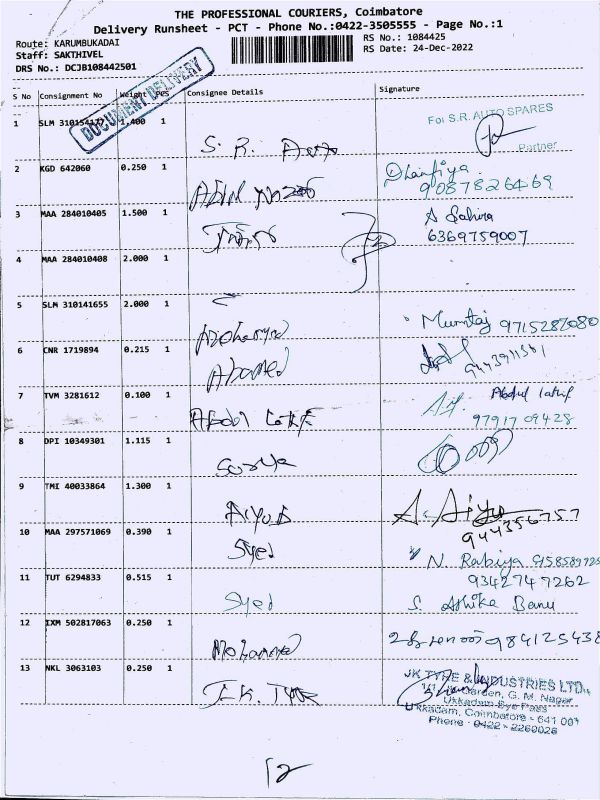 THE PROFESSIONAL COURIERS, Coimbatore
Delivery Runsheet - PCT - Phone No.:0422-3505555 - Page No.:1
Route: KARUMBUKADAI
RS No.: 1084425
Staff: SAKTHIVEL
RS Date: 24-Dec-2022
DRS No.: DCJB108442501
DOCUMENT DELIVERY
S No Consignment No Weight PCS Consignee Details Signature
1 SLM 1.400 1
For S.R. AUTO SPARES
Partner
S. R. Auto
2 KGD 642060 0.250 1
9087826469
Abdul
3 MAA 284010405 1.500 1
A Sahira
6369759007
4 MAA 284010408 2.000 1
5 SLM 310141655 2.000 1
Mumtaj 9715287080
6 CNR 1719894 0.215 1
Ahamed
7 TVM 3281612 0.100 1
Abdul Latif
9791709428
Abdul Latif
8 DPI 10349301 1.115 1
Surya
9 TMI 40033864 1.300 1
Aiyub
944356757
10 MAA 297571069 0.390 1
Syed
N. Rabiya
11 TUT 6294833 0.515 1
9342747262
Syed
S. Ashika Banu
12 IXM 502817063 0.250 1
Mohammed
13 NKL 3063103 0.250 1
J.K. Tyre
JK TYRE & INDUSTRIES LTD.,
Garden, G. M. Nagar
Ukkadam Bye Pass
Ukkadam, Coimbatore - 641 001
Phone : 0422 - 2260026
12